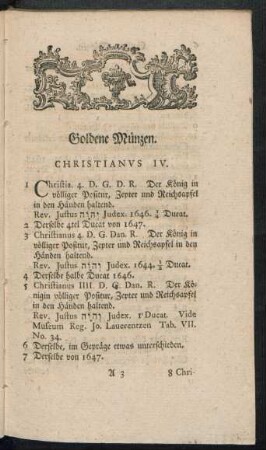 Goldene Münzen.
CHRISTIANVS IV.
1 Christia. 4. D. G. D. R. Der König in
völliger Positur, Zepter und Reichsapfel
in den Händen haltend.
Rev. Justus יהוה Judex. 1646. ¼ Ducat.
2 Derselbe 4tel Ducat von 1647.
3 Christianus 4. D. G. Dan. R. Der König in
völliger Positur, Zepter und Reichsapfel in den
Händen haltend.
Rev. Justus יהוה Judex. 1644. ½ Ducat.
4 Derselbe halbe Ducat 1646.
5 Christianus IIII. D. G. Dan. R. Der Kö-
nig in völliger Positur, Zepter und Reichsapfel
in den Händen haltend.
Rev. Justus יהוה Judex. 1 Ducat. Vide
Museum Reg. Jo. Lauerentzen Tab. VII.
No. 34.
6 Derselbe, im Gepräge etwas unterschieden.
7 Derselbe von 1647.
A 3 8 Chri-